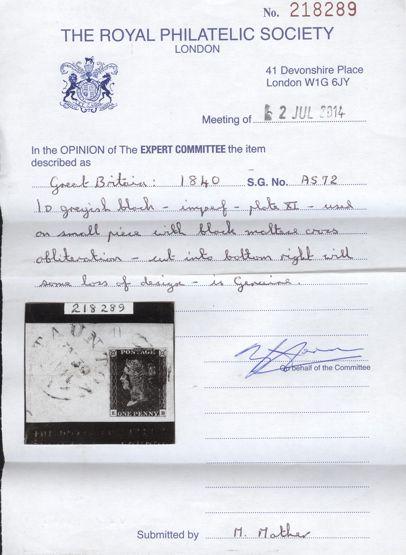 No. 218289
THE ROYAL PHILATELIC SOCIETY
LONDON
41 Devonshire Place
London W1G 6JY
Meeting of 2 JUL 2014
In the OPINION of The EXPERT COMMITTEE the item
described as
Great Britain: 1840 S.G. No. AS72
1d greyish black - imperf - plate XI - used
on small piece with black maltese cross
obliteration - cut into bottom right with
some loss of design - is Genuine.
218289
TAUN
POSTAGE
ONE PENNY
On behalf of the Committee
Submitted by M. Mather